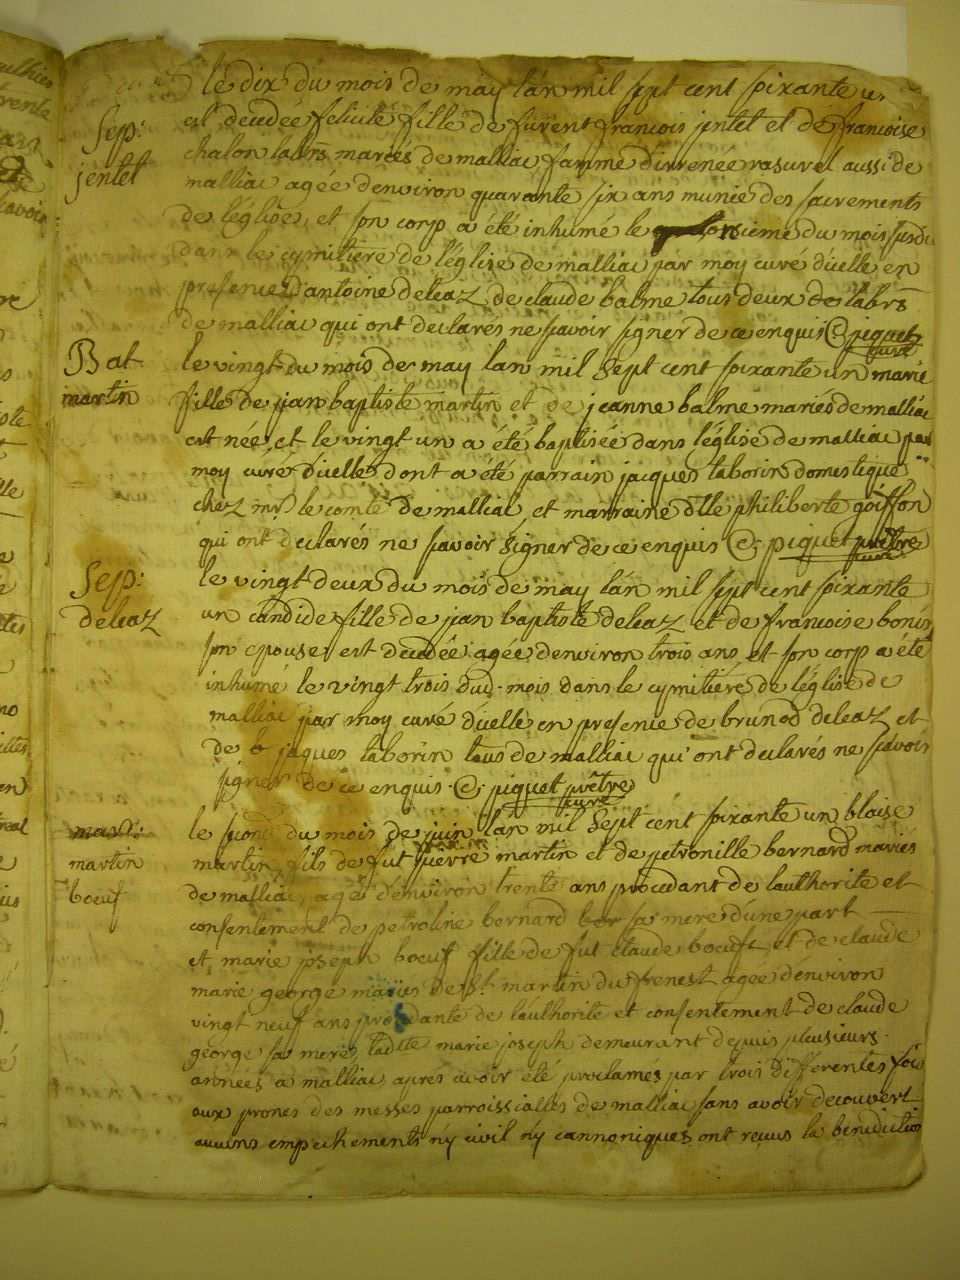 le dix du mois de may lan mil sept cent soixante u
Sep:
est decedée felicité fille de furent francois jentet et de francoise
jentet
chalon labrs mariés de malliac famme direnée rasurel aussi de
malliac agée denviron quarante six ans munie des sacrements
de léglise, et son corp a été inhumé le onsieme du mois susdu
dans le cymitiere de léglise de malliac par moy curé dicelle en
presence d'antoine deleaz de claude balme tous deux de labrs
de malliac qui ont declarés ne savoir signer de ce enquis piquet
curé
Bat
martin
le vingt du mois de may lan mil sept cent soixante un marie
fille de jian baptiste martin et de jeanne balme mariés de malliac
est née, et le vingt un a été baptisée dans léglise de malliac par
moy curé dicelle dont a été parrain jacques taborin domestique
chez mr le comte de malliac, et marraine dlle philiberte goiffon
qui ont declarés ne savoir signer de ce enquis piquet prêtre
curé
Sep:
deleaz
le vingt deux du mois de may lan mil sept cent soixante
un candide fille de jian baptiste deleaz et de francoise bonis
son epouse est decedée agée denviron trois ans, et son corp a été
inhumé le vingt trois dud. mois dans le cymitiére de léglise de
malliac par moy curé dicelle en presence de brunod deleaz et
de jaques taborin tous de malliac qu'ont declarés ne savoir
signer de ce enquis. piquet prêtre
curé
mari:
martin
boeuf
le second du mois de juin lan mil sept cent soixante un blaise
martin, fils de fut pierre martin et de petronille bernard mariés
de malliac, agé denviron trente ans procedant de lauthorite et
consentement de petroline bernard sa mere dune part
et, marie joseph boeuf fille de fut claude boeuf, et de claude
marie george mariés de st. martin du frenest agée denviron
vingt neuf ans procedante de lauthorite et consentement de claude
george sa mere, ladite marie joseph demeurant depuis plusieurs
années a malliac, aprés avoir été proclamés par trois differentes fois
aux prones des messes parroissialles de malliac sans avoir decouvert
aucuns empechements ny civil ny cannoniques, ont reçus la benediction